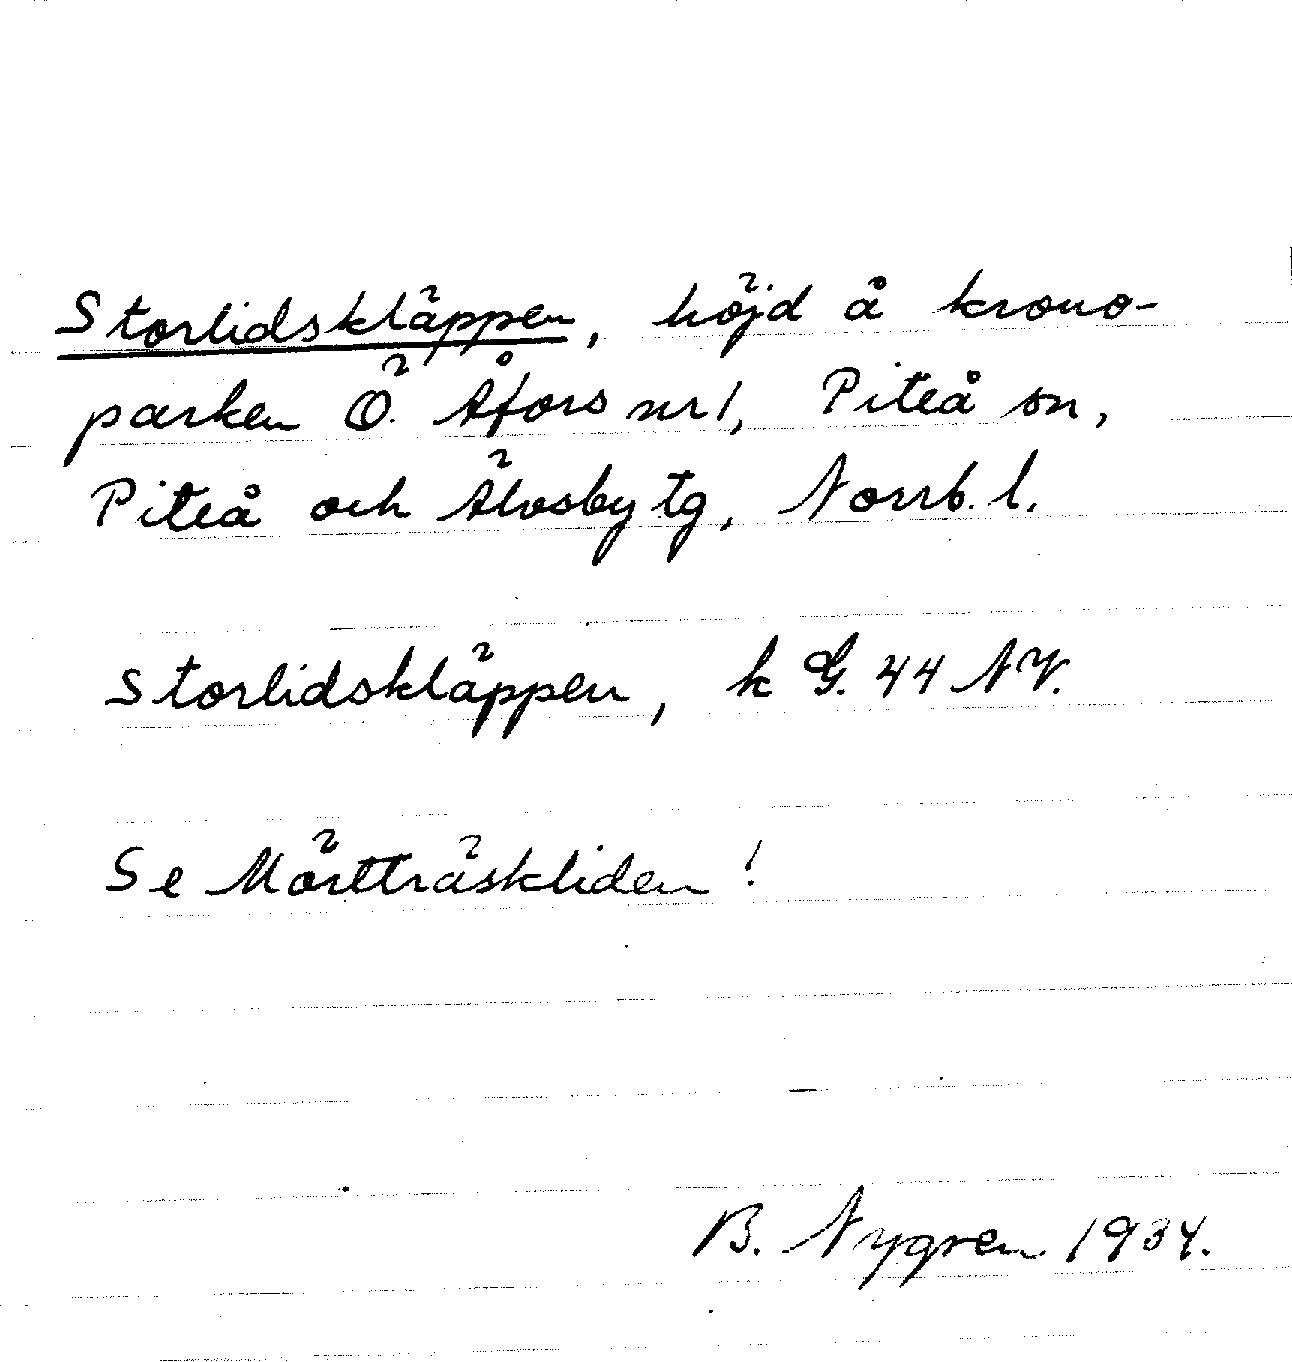 Storlidskläppen, höjd å krono-
parken Ö. Åfors nr 1, Piteå sn,
Piteå och Älvsby tg, Norrb. l.
Storlidskläppen, k G. 44 NV.
Se Mörtträskliden!
B. Nygren 1934.